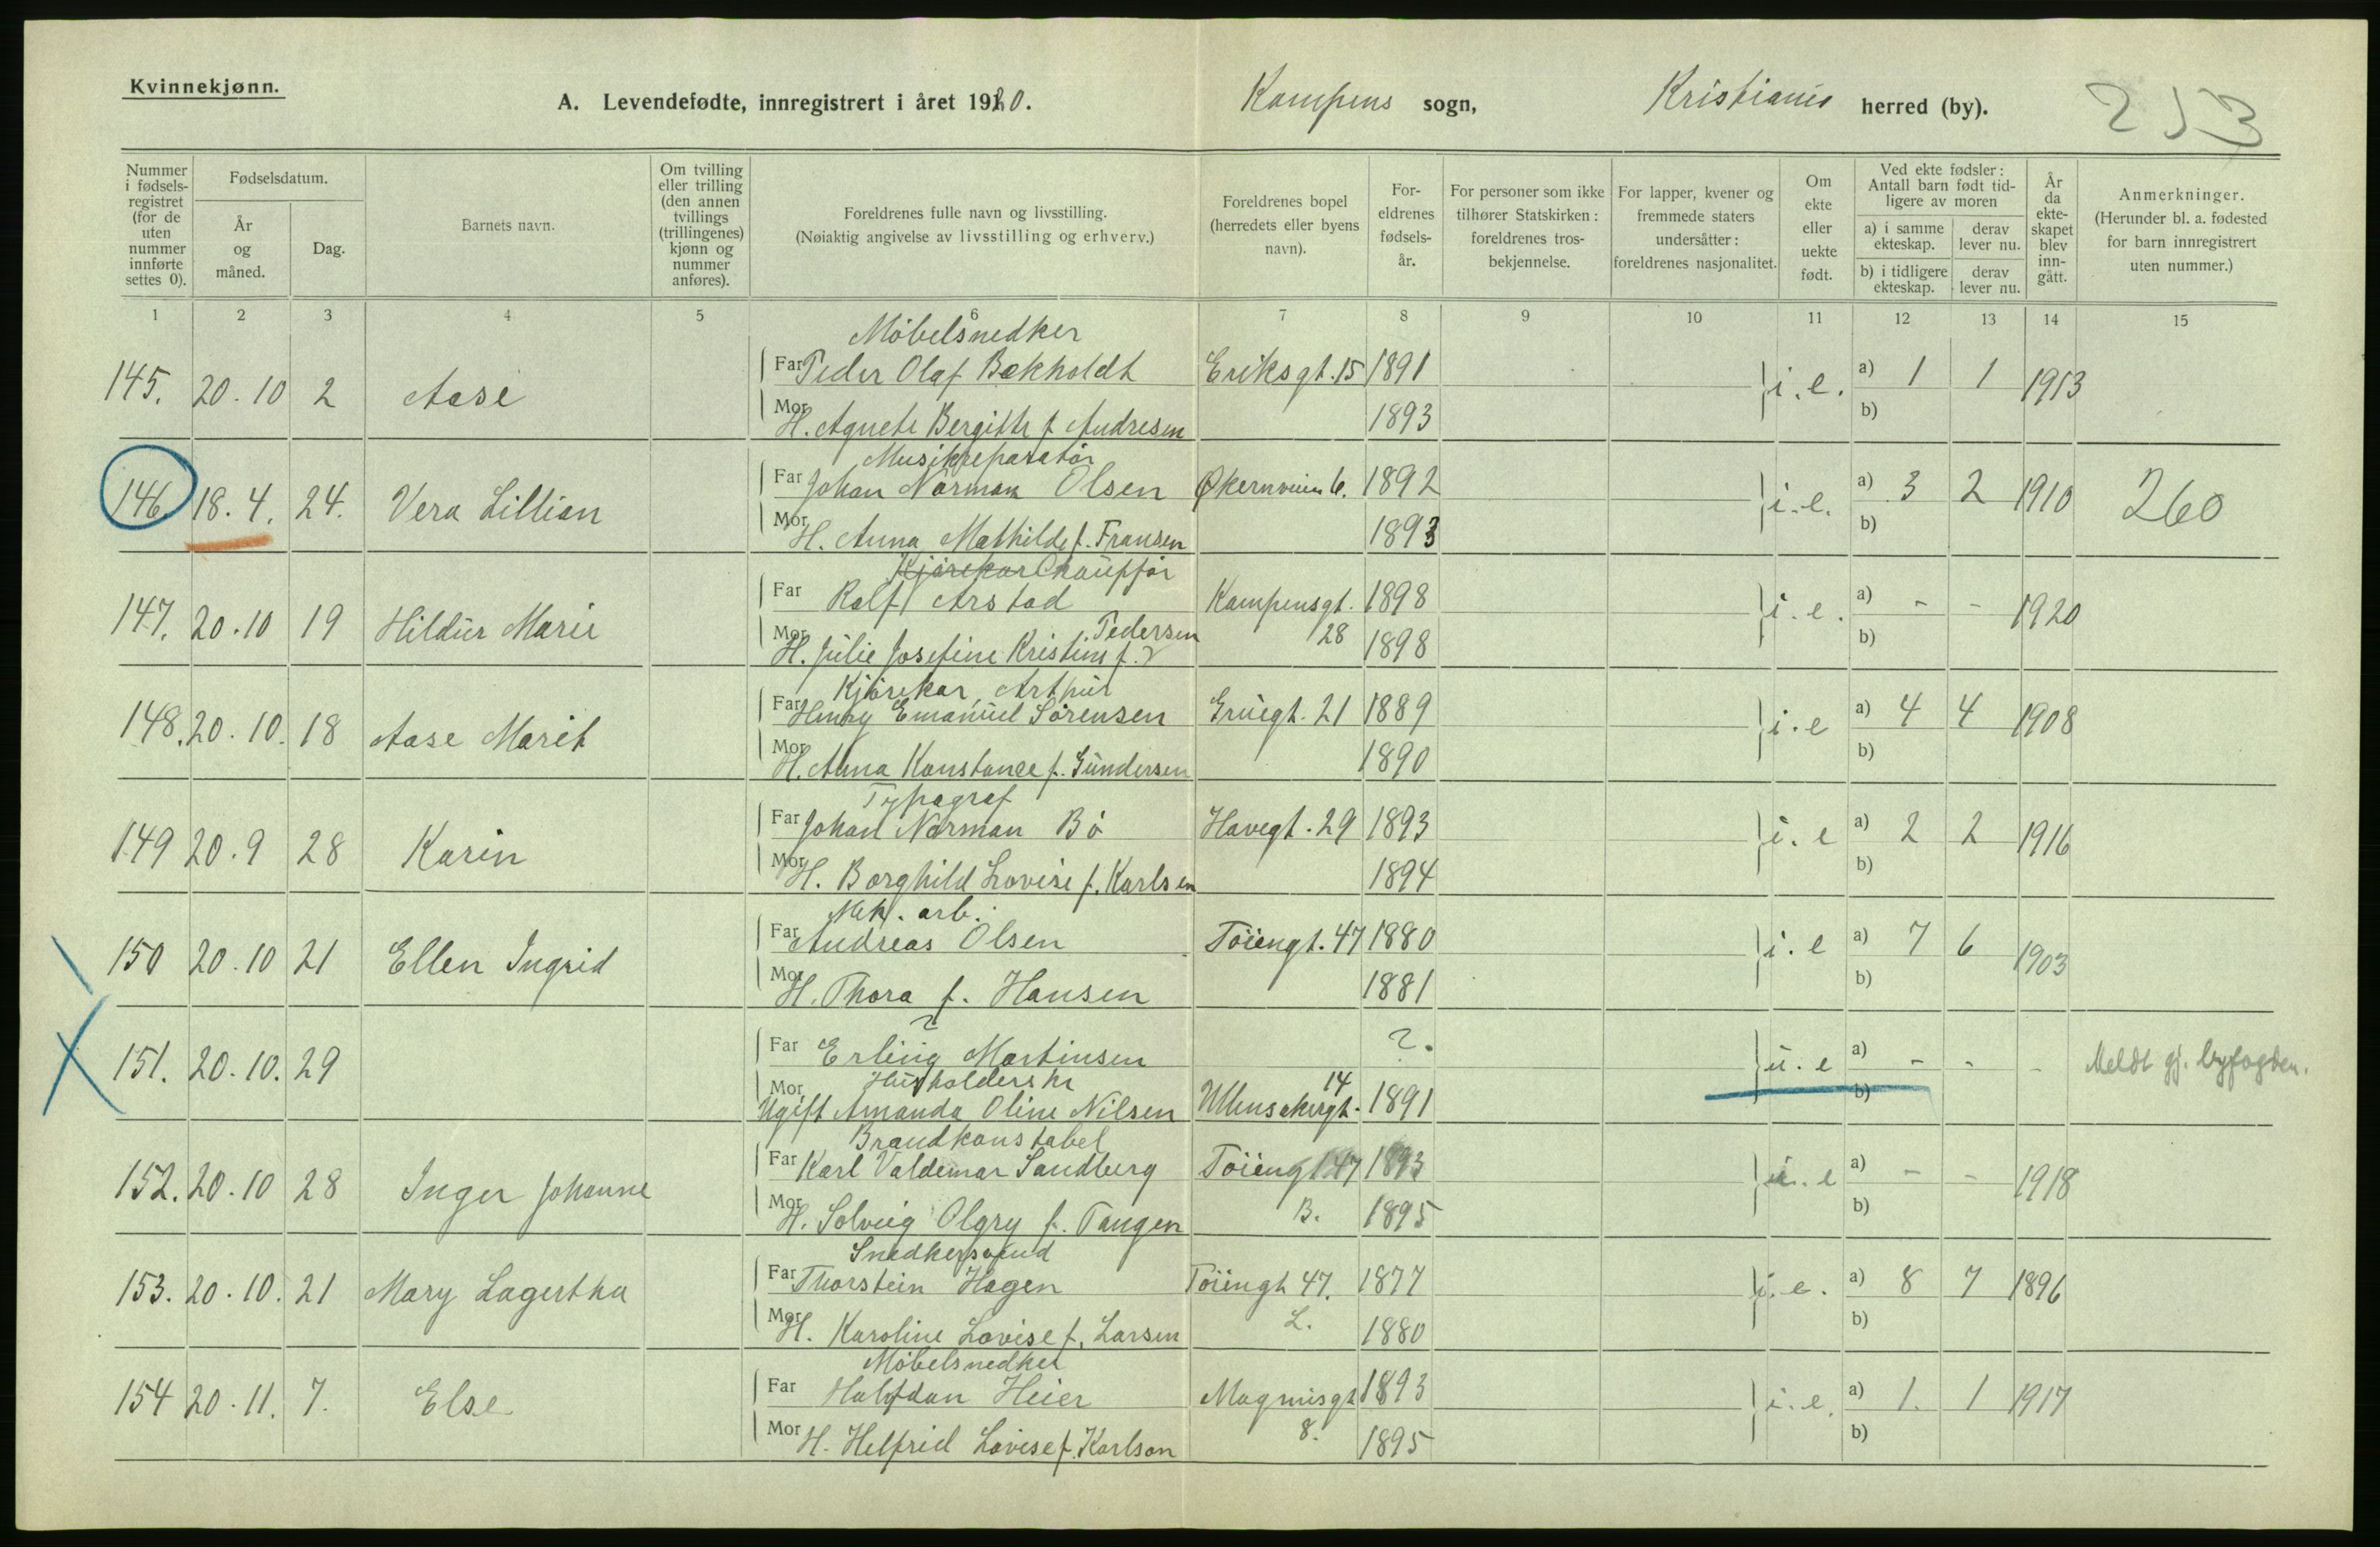 Kvinnekjønn.
A. Levendefødte, innregistrert i året 1920. Kampens sogn, Kristiania herred (by). 253
Nummer i fødselsregistret (for de uten nummer innførte settes 0).
Fødselsdatum.
År og måned.
Dag.
Barnets navn.
Om tvilling eller trilling (den annen tvillings (trillingenes) kjønn og nummer anføres).
Foreldrenes fulle navn og livsstilling.
(Nøiaktig angivelse av livsstilling og erhverv.)
Foreldrenes bopel (herredets eller byens navn).
Foreldrenes fødselsår.
For personer som ikke tilhører Statskirken: foreldrenes trosbekjennelse.
For lapper, kvener og fremmede staters undersåtter: foreldrenes nasjonalitet.
Om ekte eller uekte født.
Ved ekte fødsler: Antall barn født tidligere av moren
a) i samme ekteskap. derav lever nu.
b) i tidligere ekteskap. derav lever nu.
År da ekteskapet blev inngått.
Anmerkninger.
(Herunder bl. a. fødested for barn innregistrert uten nummer.)
1 2 3 4 5 6 7 8 9 10 11 12 13 14 15
Møbelsnedker
145. 20.10 2 Aase Far Peder Olaf Bækholdt Eriksgt. 15 1891 i.e. a) 1 1 1913
Mor H. Agnete Bergitte f. Andresen 1893 b)
Musikreparatør
146. 18.4. 24. Vera Lillian Far Johan Norman Olsen Økernveien 6. 1892 i.e. a) 3 2 1910 260
Mor H. Anna Mathilde f. Fransen 1893 b)
Kjørekar Chauffør
147. 20.10 19 Hildur Marie Far Rolf Arstad Kampensgt. 1898 i.e. a) - - 1920
Pedersen
Mor H. Julie Josefine Kristine f. 28 1898 b)
Kjørekar, Arthur
148. 20.10. 18 Aase Marit Far Henry Emanuel Sørensen Gruegt. 21 1889 i.e a) 4 4 1908
Mor H. Anna Konstance f. Gundersen 1890 b)
Typograf
149 20.9 28 Karin Far Johan Norman Bø Havegt. 29 1893 i.e a) 2 2 1916
Mor H. Borghild Lovise f. Karlsen 1894 b)
Mek. arb.
150 20.10 21 Ellen Ingrid Far Andreas Olsen Tøiengt. 47 1880 i.e a) 7 6 1903
Mor H. Thora f. Hansen 1881 b)
?
151. 20.10. 29 Far Erling Martinsen ?. u.e a) - - - Meldt gj. byfogden.
Husholderske 14
Mor Ugift Amanda Oline Nilsen Ullensakergt. 1891 b)
Brandkonstabel
152. 20.10 28 Inger Johanne Far Karl Valdemar Sandberg Tøiengt 47 1893 i.e a) - - 1918
Mor H. Solveig Olgry f. Tangen B. 1895 b)
Snedkersvend
153. 20.10. 21 Mary Lagertha Far Thorstein Hagen Tøiengt 47. 1877 i.e. a) 8 7 1896
Mor H. Karoline Lovise f. Larsen L. 1880 b)
Møbelsnedker
154 20.11. 7. Else Far Halfdan Heier Magnusgt 1893 i.e. a) 1. 1 1917
Mor H. Helfrid Lovise f. Karlson 8. 1895 b)